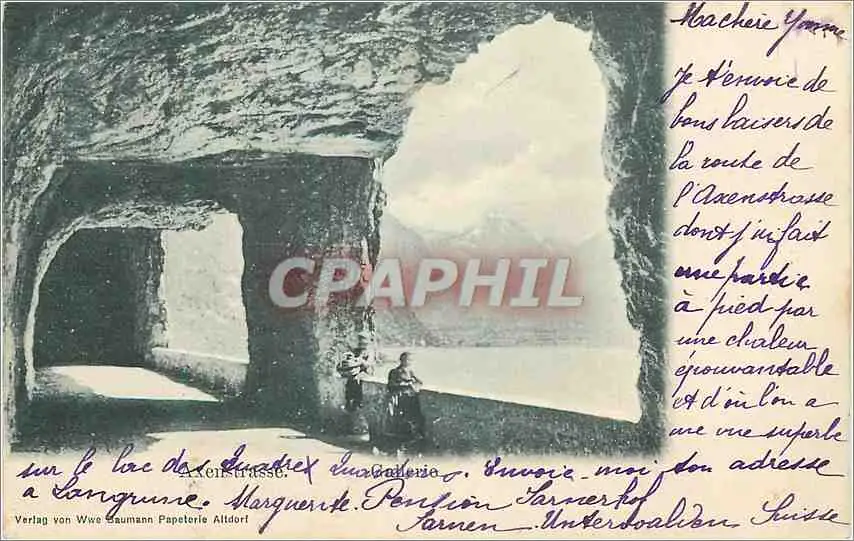 Ma chère Yvonne
Je t'envoie de
bons baisers de
la route de
l'Axenstrasse
dont j'ai fait
une partie
à pied par
une chaleur
épouvantable
et d'où l'on a
une vue superbe
sur le lac des Quatre Cantons. Envoie-moi ton adresse
a Langrune. Marguerite. Pension Sarnerhof
Sarnen Unterwalden Suisse
Axenstrasse. Galerie
CPAPHIL
Verlag von Wwe Baumann Papeterie Altdorf